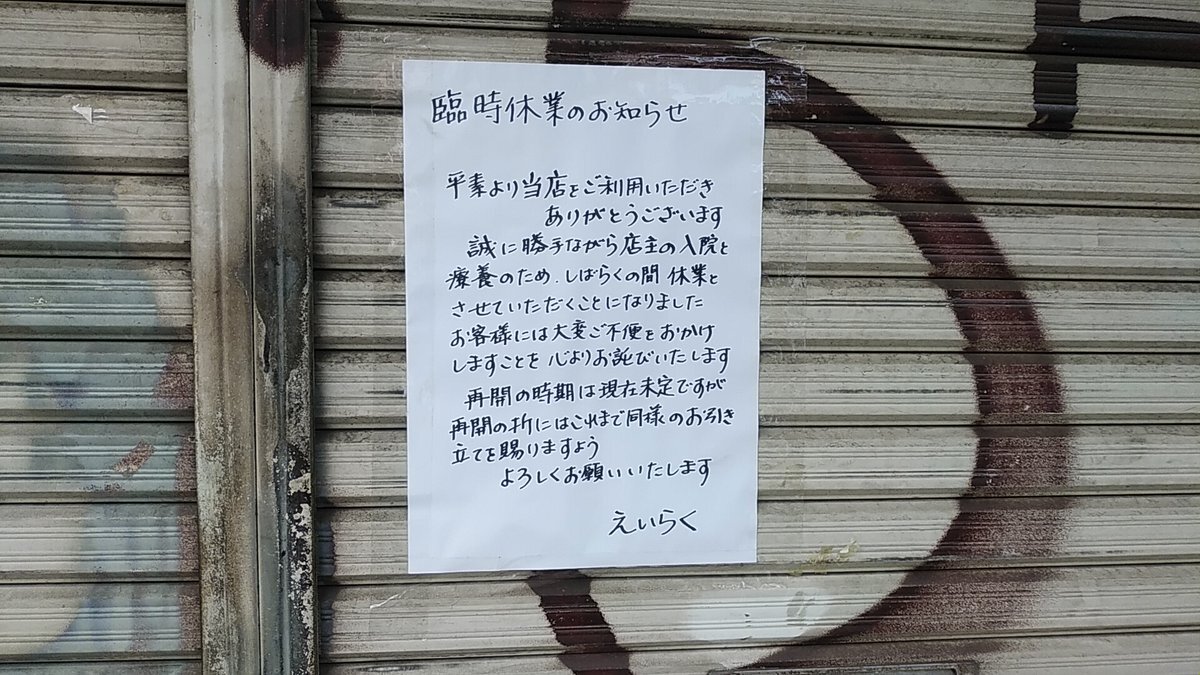 臨時休業のお知らせ
平素より当店をご利用いただき
ありがとうございます
誠に勝手ながら店主の入院と
療養のため、しばらくの間 休業と
させていただくことになりました
お客様には大変ご不便をおかけ
しますことを心よりお詫びいたします
再開の時期は現在未定ですが
再開の折にはこれまで同様のお引き
立てを賜りますよう
よろしくお願いいたします
えいらく